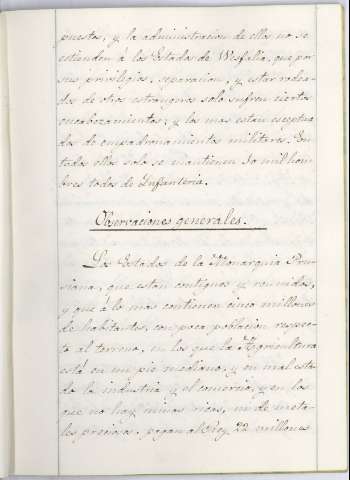 puestos, y la administracion de ellos no se
estienden á los Estados de Wesfalia, que por
sus privilegios, separacion, y estar rodea-
dos de otros estrangeros solo sufren ciertos
encabezamientos; y los mas estan esceptua
dos de empadronamientos militares. En
todos ellos solo se mantienen 30 mil hom
bres todos de Infanteria.
Observaciones generales.
Los Estados de la Monarquia Pru-
siana, que estan contiguos y reunidos,
y que á lo mas contienen cinco millones
de habitantes, con poca poblacion respec-
to al terreno, en los que la Agricultura
está en un pie mediano, y en mal esta
do la industria y el comercio, y en los
que no hay minas ricas, ni de meta-
les preciosos, pagan al Rey 22 millones